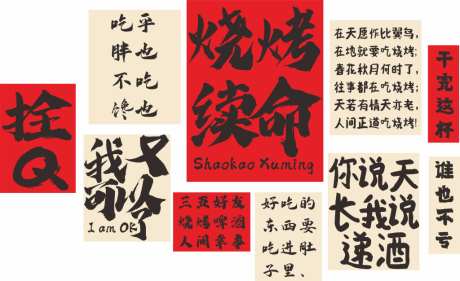 拴Q
吃乎
胖也
不吃
馋也
我又
可以了
I am OK
烧烤
续命
Shaokao Xuming
三五好友
烧烤啤酒
人间幸事
好吃的
东西要
吃进肚
子里、
在天愿作比翼鸟,
在地就要吃烧烤;
春花秋月何时了,
往事都在吃烧烤;
天若有情天亦老,
人间正道吃烧烤!
你说天
长我说
递酒
干完这杯
谁也不亏